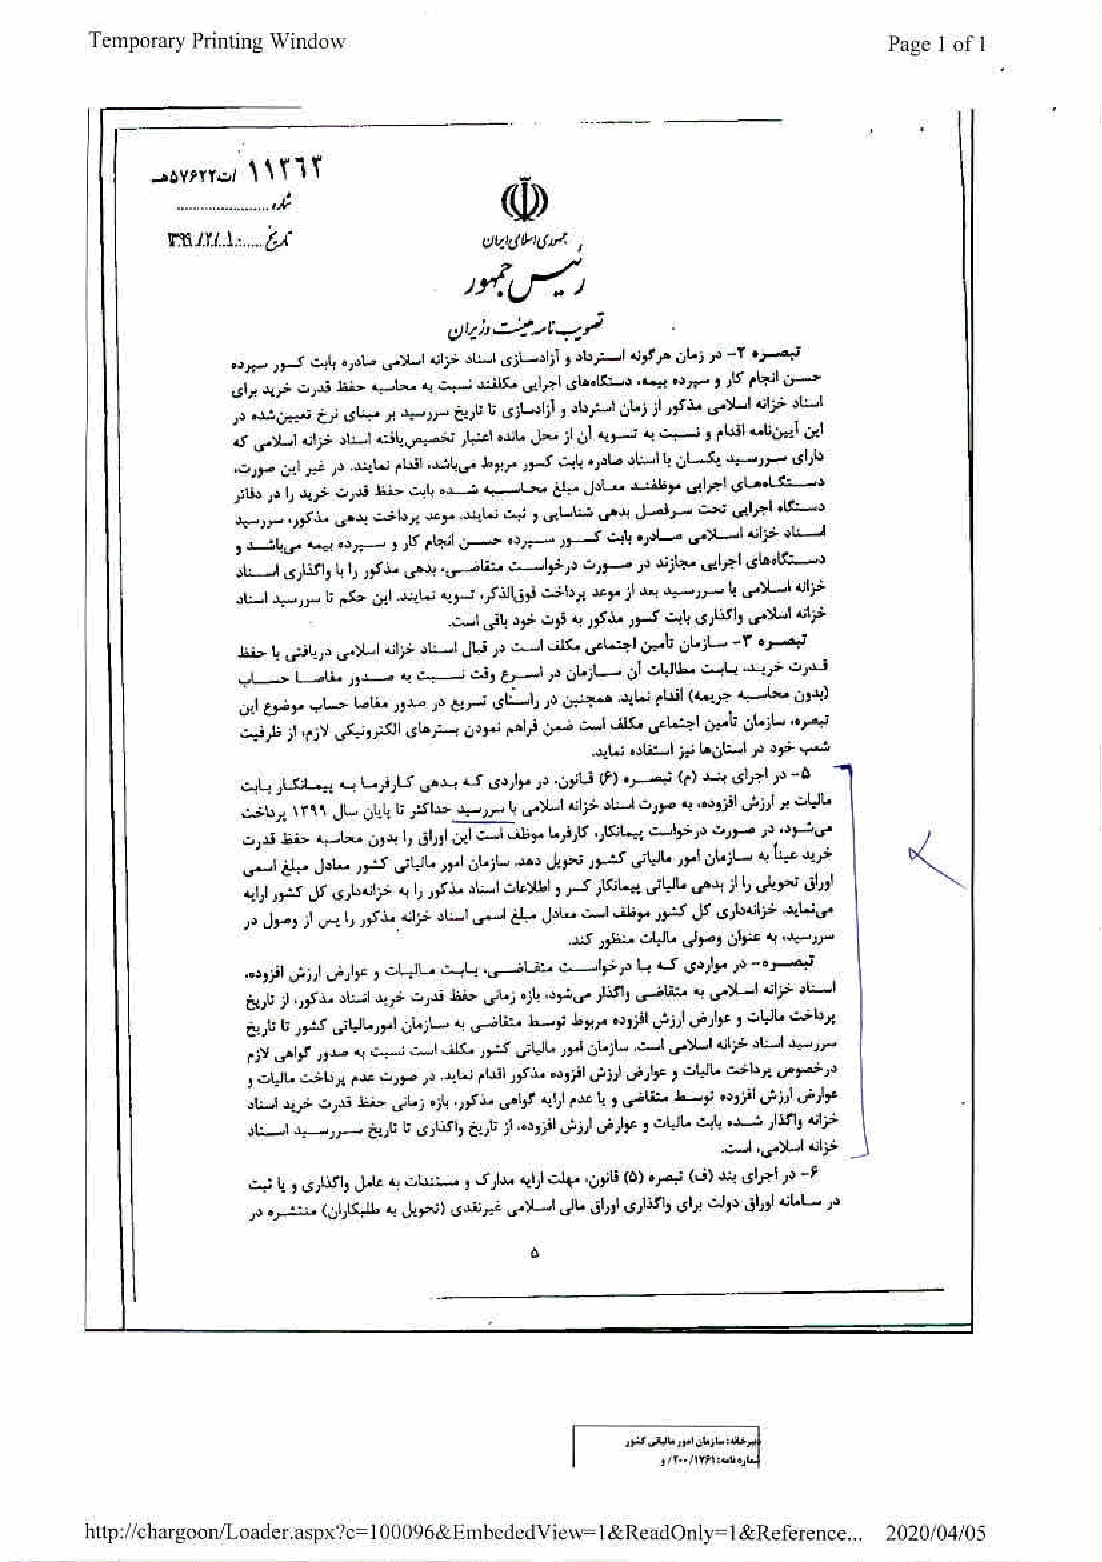 Temporary Printing Window
Page 1 of 1
۱۱۳۶۳ /ت۵۷۶۲۲هـ
شماره
تاریخ ۱۳۹۹/۲/۱۰
جمهوری اسلامی ایران
رئیس جمهور
تصویب نامه هیئت وزیران
تبصره ۲- در زمان هرگونه استرداد و آزادسازی اسناد خزانه اسلامی صادره بابت کسور سپرده
حسن انجام کار و سپرده بیمه، دستگاه‌های اجرایی مکلفند نسبت به محاسبه حفظ قدرت خرید برای
اسناد خزانه اسلامی مذکور از زمان استرداد و آزادسازی تا تاریخ سررسید بر مبنای نرخ تعیین‌شده در
این آیین‌نامه اقدام و نسبت به تسویه آن از محل مانده اعتبار تخصیص‌یافته اسناد خزانه اسلامی که
دارای سررسید یکسان با اسناد صادره بابت کسور مربوط می‌باشد، اقدام نمایند. در غیر این صورت،
دستگاه‌های اجرایی موظفند معادل مبلغ محاسبه شده بابت حفظ قدرت خرید را در دفاتر
دستگاه اجرایی تحت سرفصل بدهی شناسایی و ثبت نمایند. موعد پرداخت بدهی مذکور، سررسید
اسناد خزانه اسلامی صادره بابت کسور سپرده حسن انجام کار و سپرده بیمه می‌باشد و
دستگاه‌های اجرایی مجازند در صورت درخواست متقاضی، بدهی مذکور را با واگذاری اسناد
خزانه اسلامی با سررسید بعد از موعد پرداخت فوق‌الذکر، تسویه نمایند. این حکم تا سررسید اسناد
خزانه اسلامی واگذاری بابت کسور مذکور به قوت خود باقی است.
تبصره ۳- سازمان تأمین اجتماعی مکلف است در قبال اسناد خزانه اسلامی دریافتی با حفظ
قدرت خرید، بابت مطالبات آن سازمان در اسرع وقت نسبت به صدور مفاصا حساب
(بدون محاسبه جریمه) اقدام نماید. همچنین در راستای تسریع در صدور مفاصا حساب موضوع این
تبصره، سازمان تأمین اجتماعی مکلف است ضمن فراهم نمودن بسترهای الکترونیکی لازم، از ظرفیت
شعب خود در استان‌ها نیز استفاده نماید.
۵- در اجرای بند (م) تبصره (۶) قانون، در مواردی که بدهی کارفرما به پیمانکار بابت
مالیات بر ارزش افزوده، به صورت اسناد خزانه اسلامی با سررسید حداکثر تا پایان سال ۱۳۹۹ پرداخت
می‌شود، در صورت درخواست پیمانکار، کارفرما موظف است این اوراق را بدون محاسبه حفظ قدرت
خرید عیناً به سازمان امور مالیاتی کشور تحویل دهد. سازمان امور مالیاتی کشور معادل مبلغ اسمی
اوراق تحویلی را از بدهی مالیاتی پیمانکار کسر و اطلاعات اسناد مذکور را به خزانه‌داری کل کشور ارایه
می‌نماید. خزانه‌داری کل کشور موظف است معادل مبلغ اسمی اسناد خزانه مذکور را پس از وصول در
سررسید، به عنوان وصولی مالیات منظور کند.
تبصره- در مواردی که با درخواست متقاضی، بابت مالیات و عوارض ارزش افزوده،
اسناد خزانه اسلامی به متقاضی واگذار می‌شود، بازه زمانی حفظ قدرت خرید اسناد مذکور، از تاریخ
پرداخت مالیات و عوارض ارزش افزوده مربوط توسط متقاضی به سازمان امور مالیاتی کشور تا تاریخ
سررسید اسناد خزانه اسلامی است. سازمان امور مالیاتی کشور مکلف است نسبت به صدور گواهی لازم
درخصوص پرداخت مالیات و عوارض ارزش افزوده مذکور اقدام نماید. در صورت عدم پرداخت مالیات و
عوارض ارزش افزوده توسط متقاضی و یا عدم ارایه گواهی مذکور، بازه زمانی حفظ قدرت خرید اسناد
خزانه واگذار شده بابت مالیات و عوارض ارزش افزوده، از تاریخ واگذاری تا تاریخ سررسید اسناد
خزانه اسلامی، است.
۶- در اجرای بند (ف) تبصره (۵) قانون، مهلت ارایه مدارک و مستندات به عامل واگذاری و یا ثبت
در سامانه اوراق دولت برای واگذاری اوراق مالی اسلامی غیرنقدی (تحویل به طلبکاران) منتشره در
۵
دبیرخانه: سازمان امور مالیاتی کشور
شماره‌نامه: ۲۰۰/۱۷۶۱/ و
http://chargoon/Loader.aspx?c=100096&EmbededView=1&ReadOnly=1&Reference... 2020/04/05